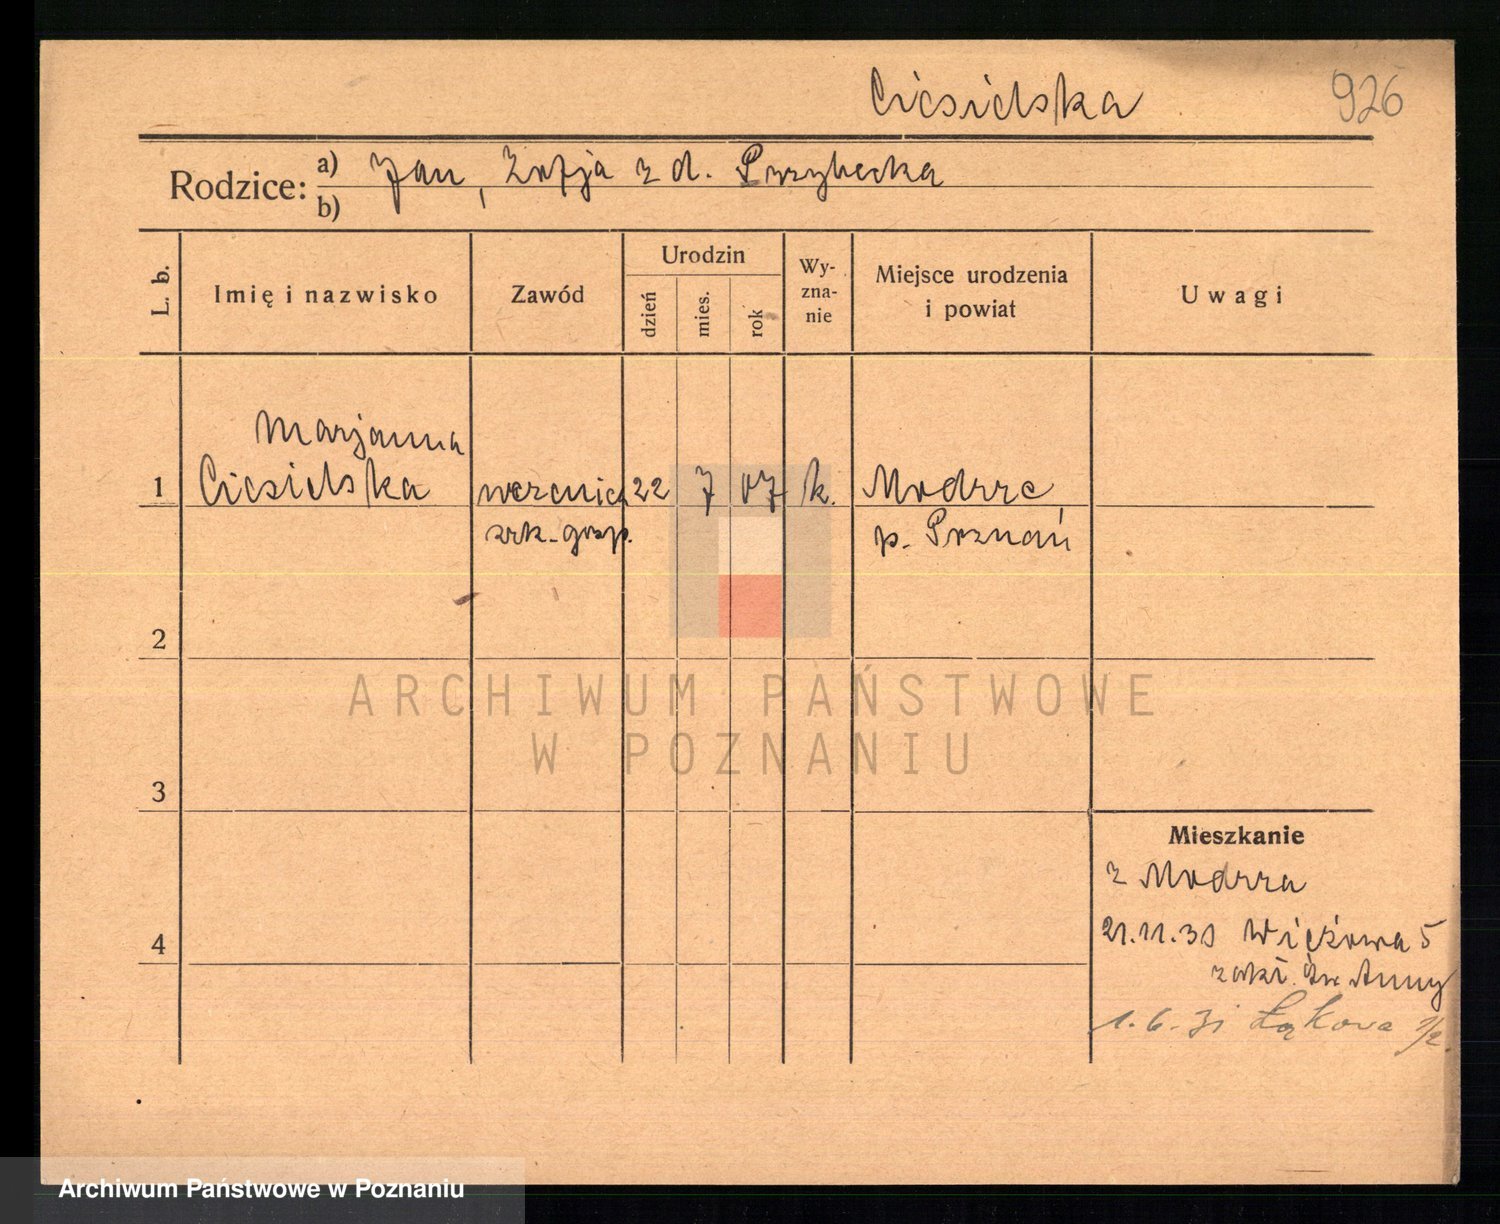 Ciesielska 926
Rodzice: a) Jan, Zofja z d. Przybecka
b)
L. b. Imię i nazwisko Zawód Urodzin dzień mies. rok Wy-zna-nie Miejsce urodzenia i powiat Uwagi
Marjanna
1 Ciesielska uczenica 22 7 07 k. Modrze
szk. gosp. p. Poznań
2
ARCHIWUM PAŃSTWOWE
W POZNANIU
3
Mieszkanie
z Modrza
4 21.11.30 Wieżowa 5
zakł. Św Anny
1.6.31 Łąkowa 1/2.
Archiwum Państwowe w Poznaniu